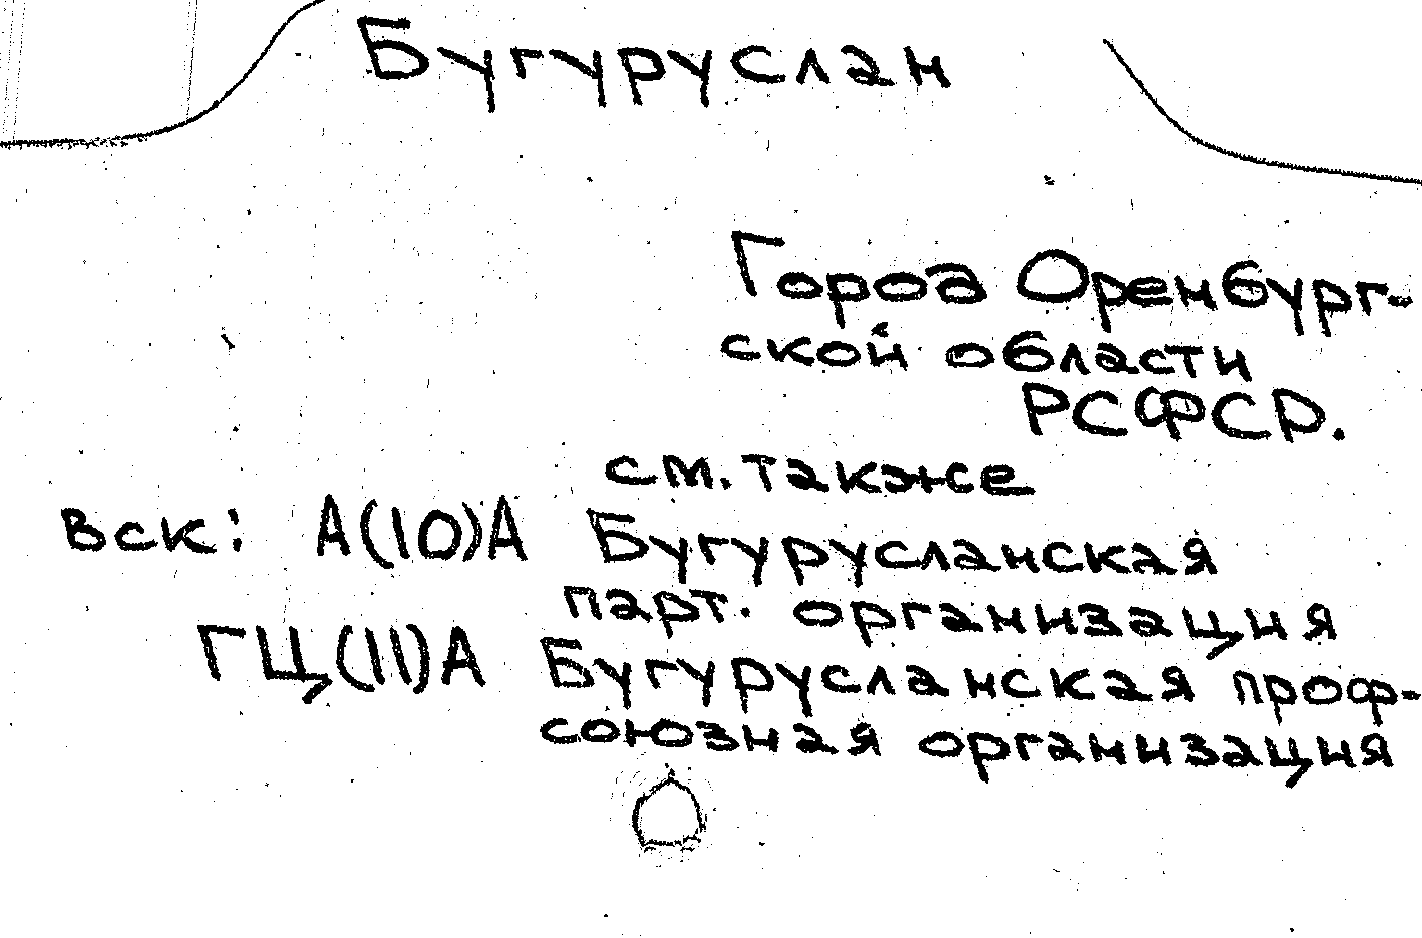 Бугуруслан
Город Оренбург-
ской области
РСФСР.
см. также
Вск: А(10)А Бугурусланская
парт. организация
ГЦ(11)А Бугурусланская проф-
союзная организация